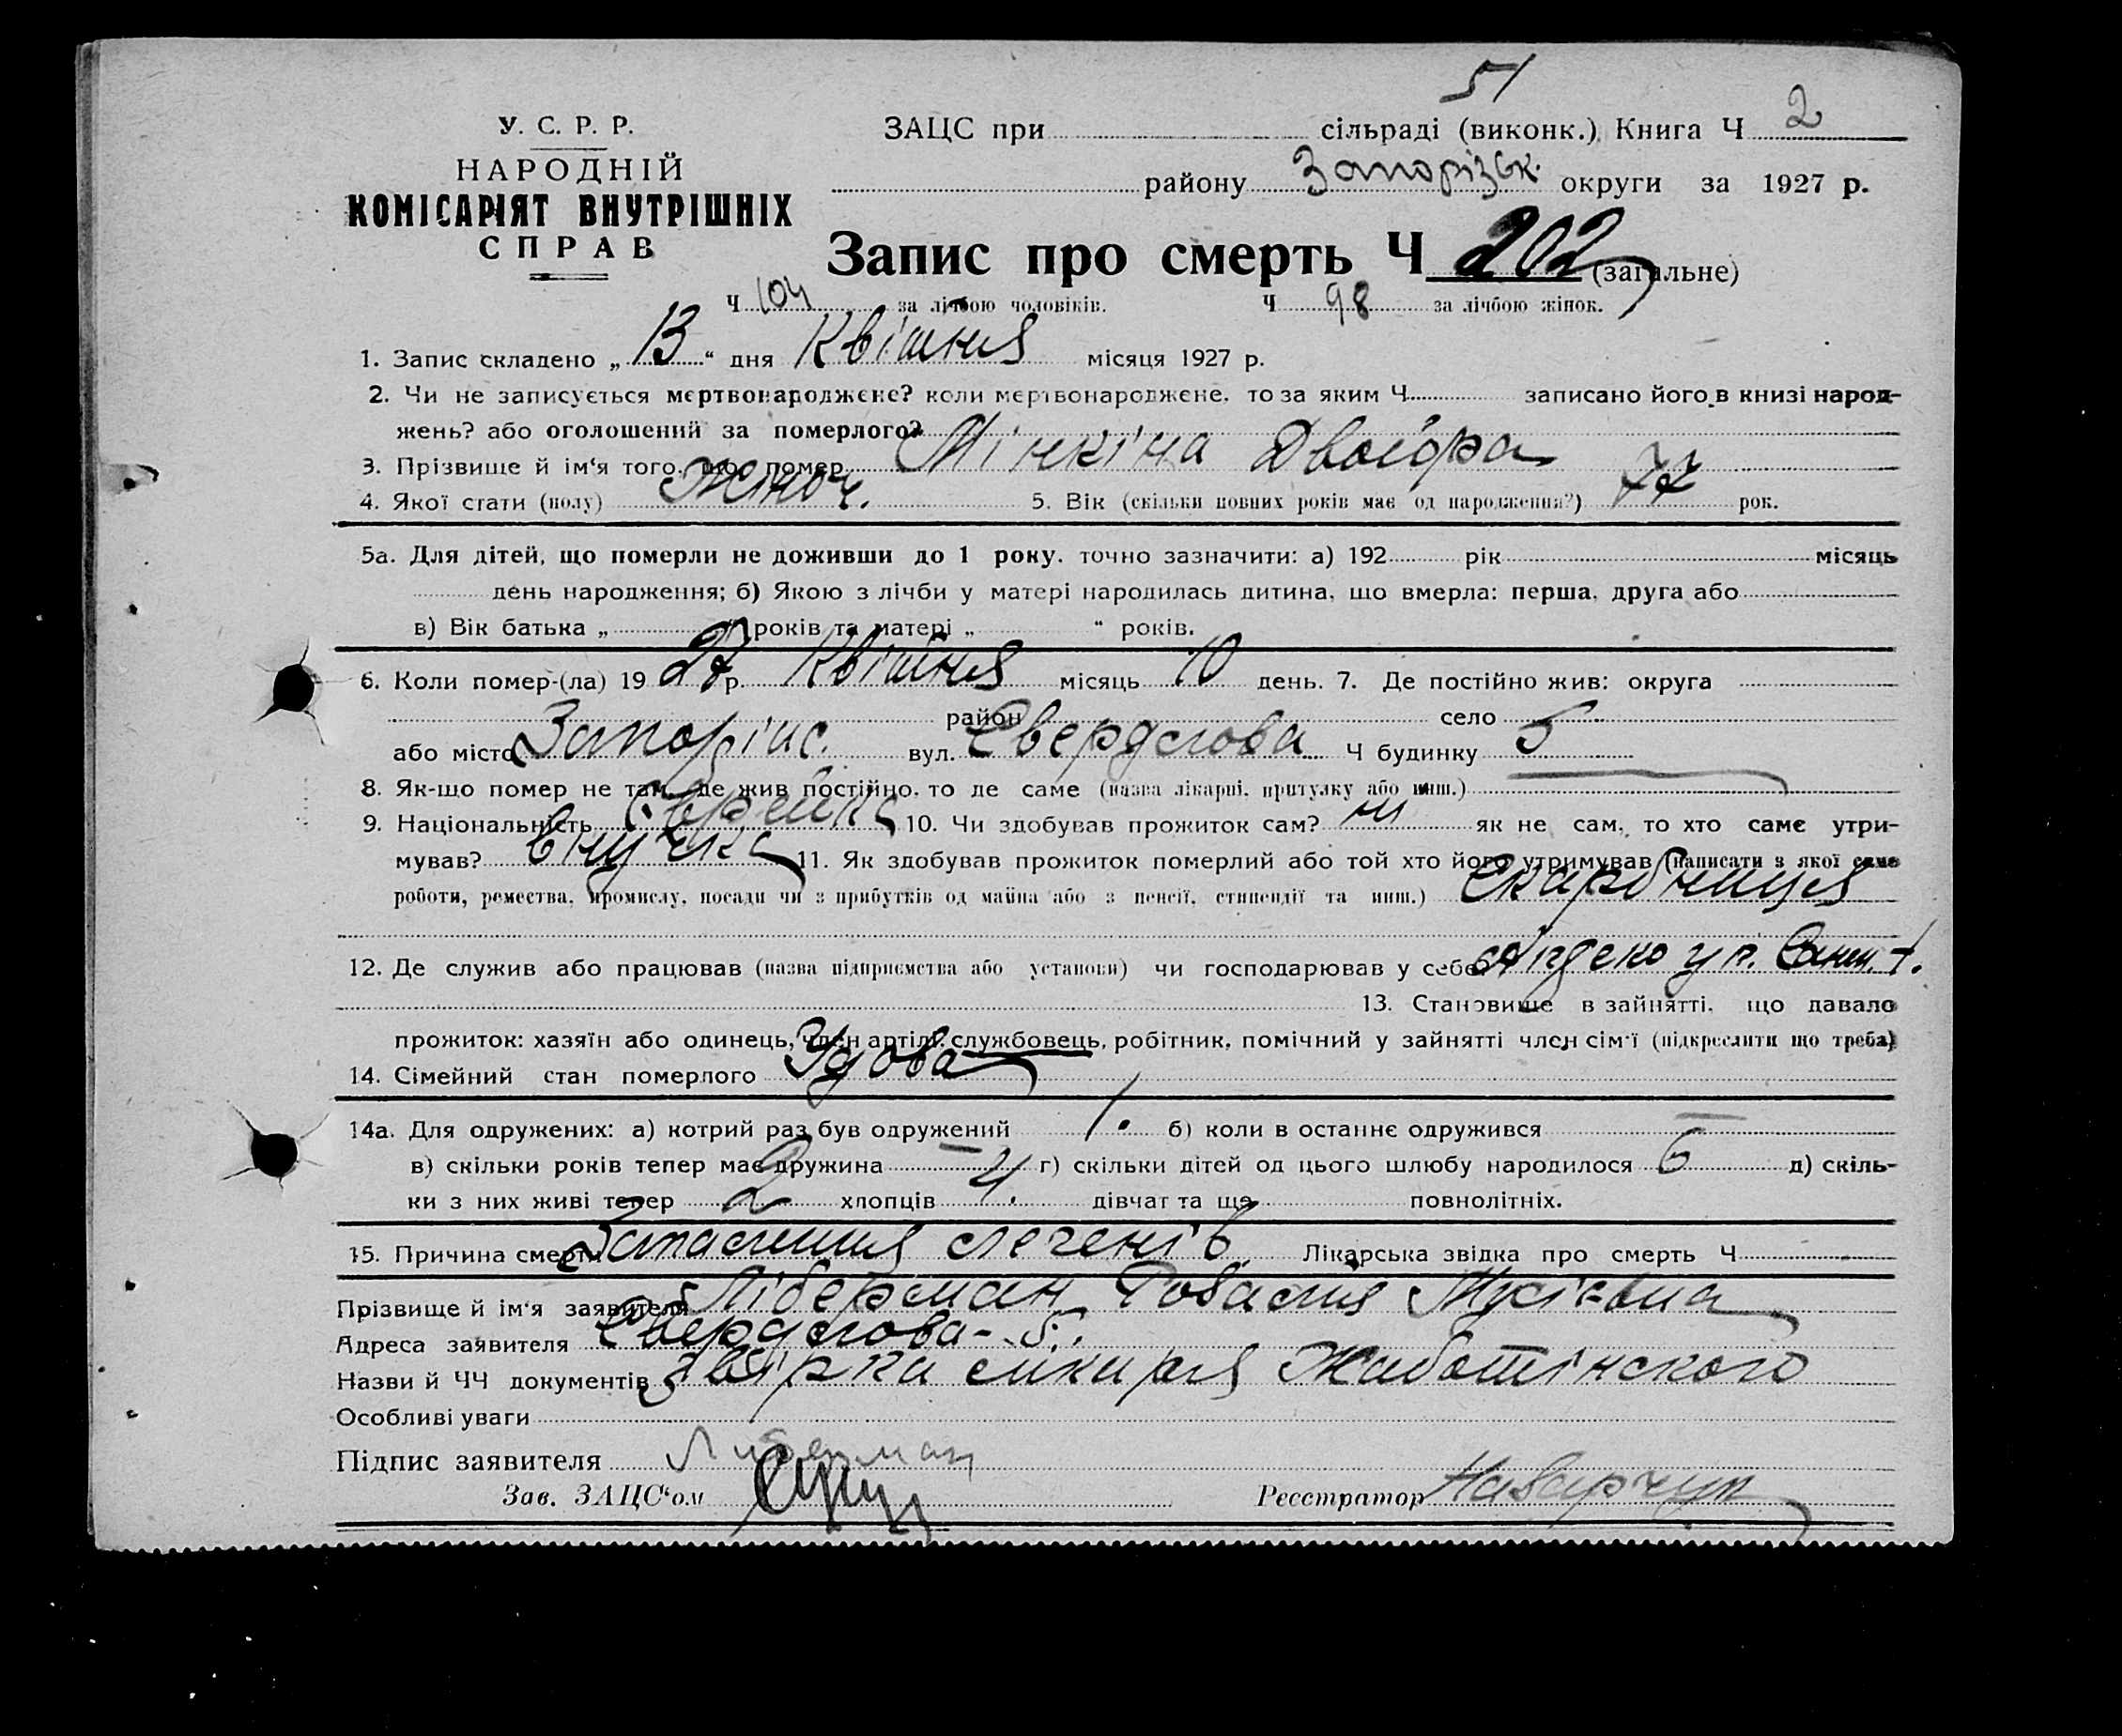 51
У. С. Р. Р.
НАРОДНІЙ
КОМІСАРІЯТ ВНУТРІШНІХ
СПРАВ
ЗАЦС при сільраді (виконк.) Книга Ч 2
району Запорізьк. округи за 1927 р.
Запис про смерть Ч 202 (загальне)
Ч 104 за лічбою чоловіків. Ч 98 за лічбою жінок.
1. Запис складено „ 13 “ дня Квітня місяця 1927 р.
2. Чи не записується мертвонароджене? коли мертвонароджене, то за яким Ч записано його в книзі народ-
жень? або оголошений за померлого?
3. Прізвище й ім‘я того, що помер Мінкіна Двойра
4. Якої стати (полу) Жіноч. 5. Вік (скільки повних років має од народження?) 77 рок.
5а. Для дітей, що померли не доживши до 1 року, точно зазначити: а) 192 рік місяць
день народження; б) Якою з лічби у матері народилась дитина, що вмерла: перша, друга або
в) Вік батька „ “ років та матері „ “ років.
6. Коли помер-(ла) 19 27 р. Квітня місяць 10 день. 7. Де постійно жив: округа
район село
або місто Запоріжж. вул. Свердлова Ч будинку 5
8. Як-що помер не там, де жив постійно, то де саме (назва лікарні, притулку або инш.)
9. Національність Єврейка 10. Чи здобував прожиток сам? ні як не сам, то хто саме утри-
мував? внучка 11. Як здобував прожиток померлий або той хто його утримував (написати з якої саме
роботи, ремества, промислу, посади чи з прибутків од майна або з пенсії, стипендії та инш.) Скарбниця
12. Де служив або працював (назва підприємства або установи) чи господарював у себе
13. Становище в зайнятті, що давало
прожиток: хазяїн або одинець, член артілі, службовець, робітник, помічний у зайнятті член сім‘ї (підкреслити що треба)
14. Сімейний стан померлого Удова
14а. Для одружених: а) котрий раз був одружений 1. б) коли в останнє одружився —
в) скільки років тепер має дружина — г) скільки дітей од цього шлюбу народилося 6 д) скіль-
ки з них живі тепер 2 хлопців 4. дівчат та ще повнолітніх.
15. Причина смерти Запалення легенів Лікарська звідка про смерть Ч
Прізвище й ім‘я заявителя Ліберман Мусіевна
Адреса заявителя Свердлова - 5.
Назви й ЧЧ документів лікаря Жаботінского
Особливі уваги
Підпис заявителя Либерман
Зав. ЗАЦС‘ом Реєстратор